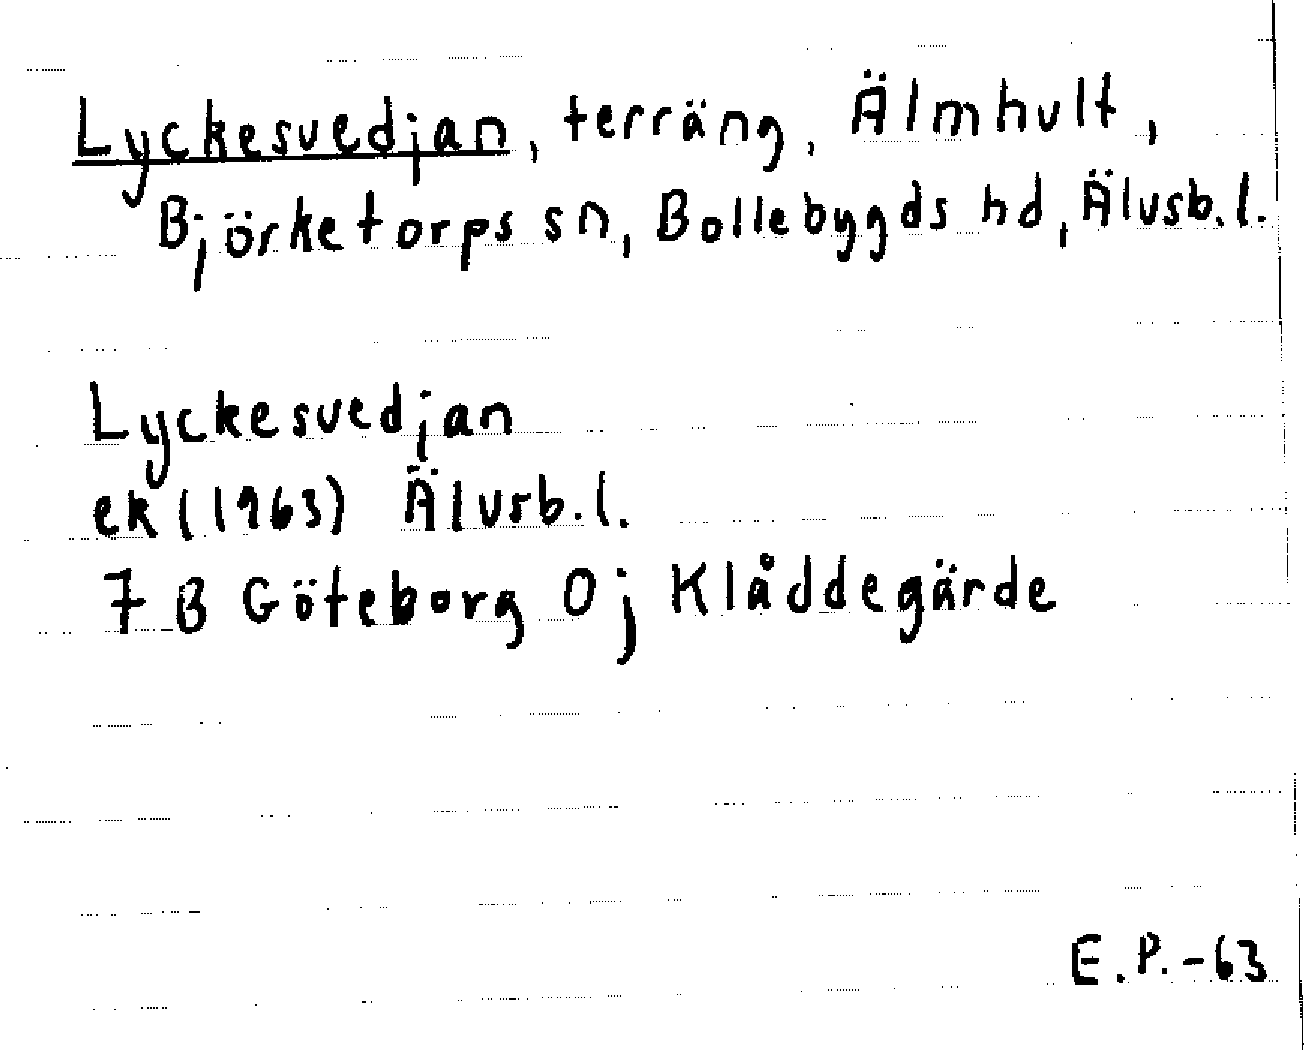 Lyckesvedjan, terräng, Älmhult,
Björketorps sn, Bollebygds hd, Älvsb.l.
Lyckesvedjan
ek (1963) Älvsb.l.
7 B Göteborg 0j Klåddegärde
E.P.-63